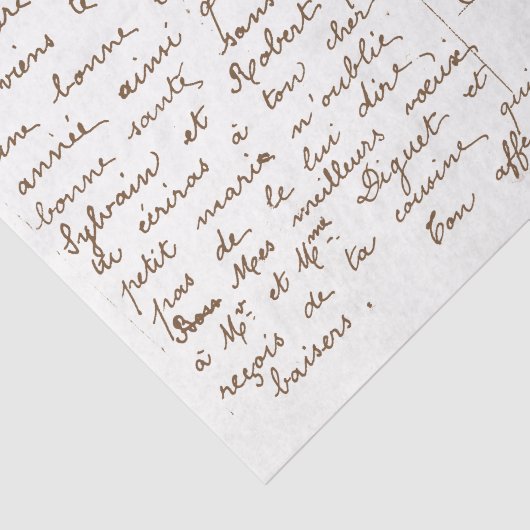 viens te
une bonne
année ainsi
bonne santé sans
Sylvain et Robert
tu écriras à ton cher
petit mari n'oublie
pas de le lui dire
Mes meilleurs voeux
à Mr et Mme Diguet et
reçois de ta cousine qui
baisers. Ton affe